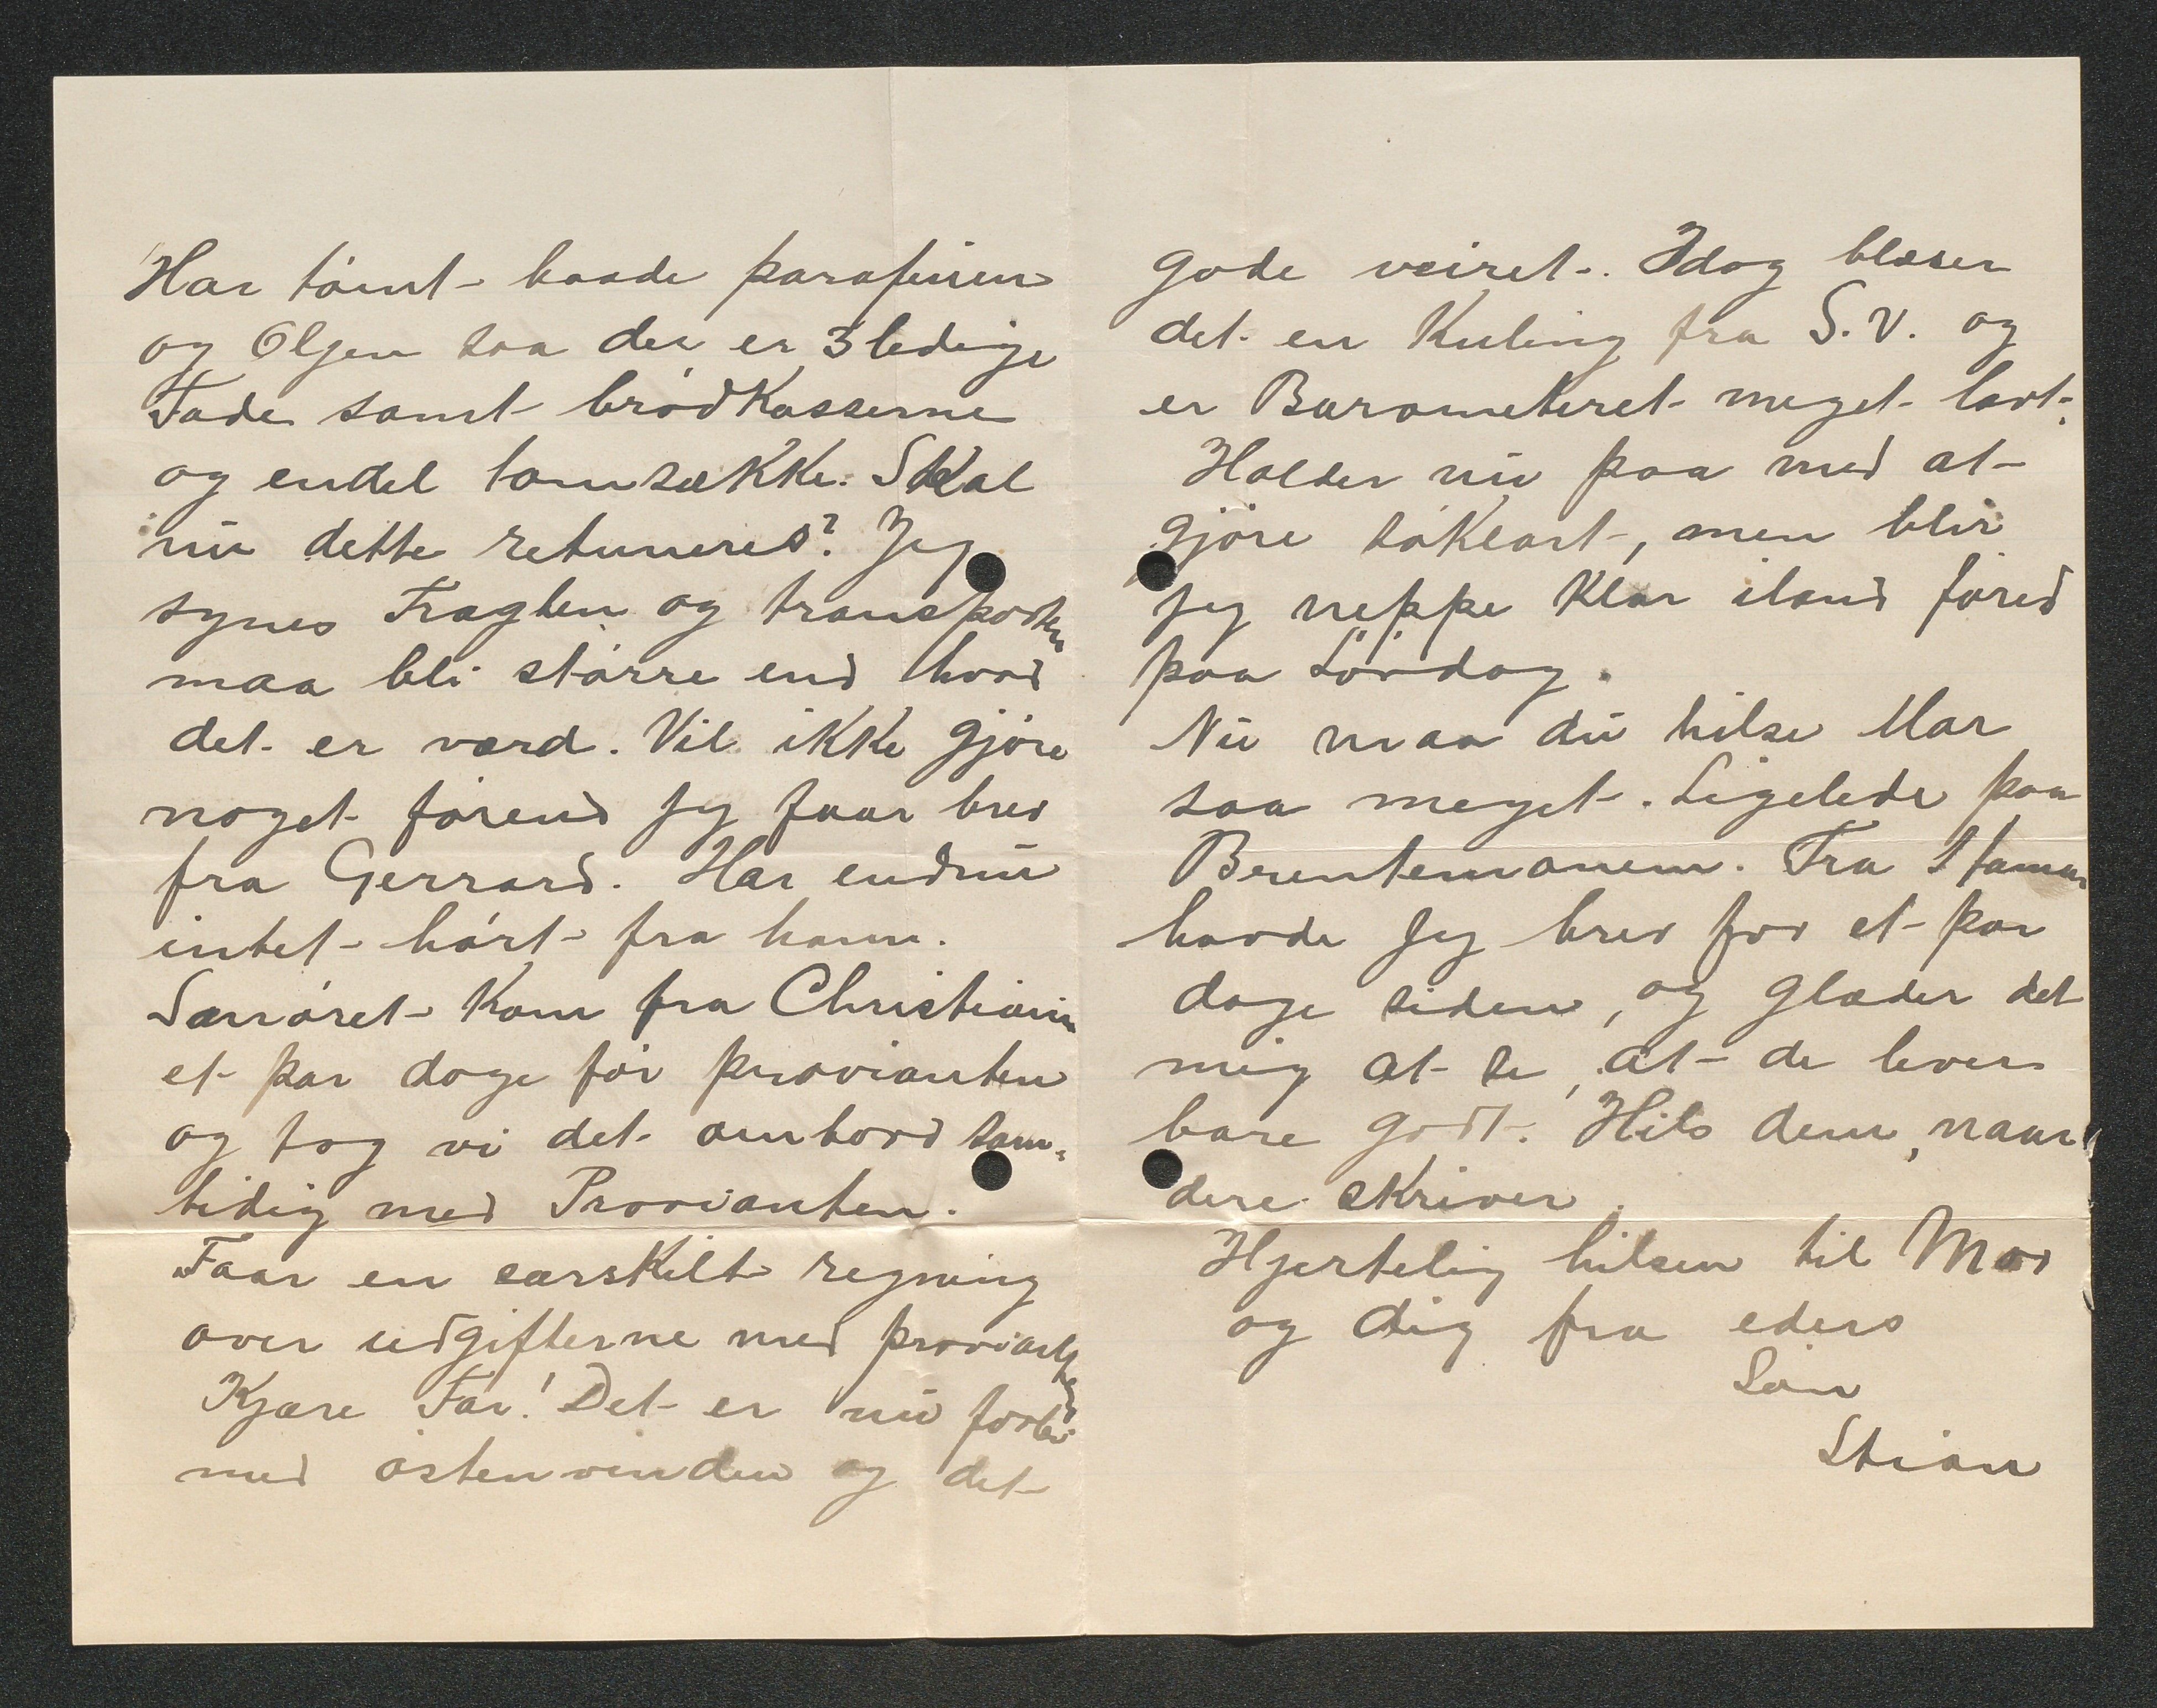 Har tømt baade parafinen
og Oljen saa der er 3 ledige
Fade samt brødkasserne
og endel tomsække. Skal
nu dette retuneres? Jeg
synes Fragten og transporten
maa bli større end hvad
det er værd. Vil ikke gjøre
noget førend Jeg faar brev
fra Gerrard. Har endnu
intet hørt fra ham.
kom fra Christiania
et par dage før provianten
og tog vi det ombord sam-
tidig med Provianten.
Faar en særskilt regning
over udgifterne med provianten
Kjære Far! Det er nu forbi
med østenvinden og det
gode veiret. Idag blæser
det en Kuling fra S.V. og
er Barometeret meget lavt.
Holder nu paa med at
gjøre søklart, men blir
Jeg neppe klar iland føred
paa Lördag.
Nu maa du hilse Mor
saa meget. Ligelede paa
Brentemoanem. Fra
havde Jeg brev for et par
dage siden, og glæder det
mig at se, at de lever
bare godt. Hils dem, naar
dere skriver.
Hjertelig hilsen til Mor
og dig fra eders
Søn
Stian